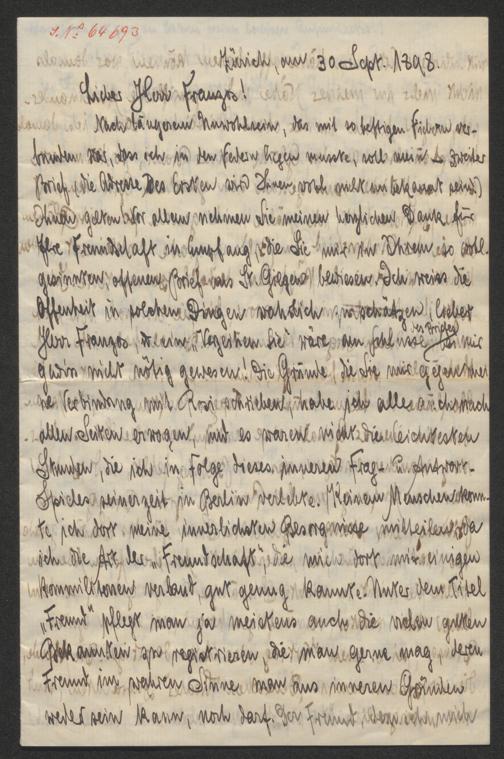 I. No 64693
Zürich, am 30 Sept. 1898.
Lieber Herr Franzos!
Nach längerem Unwohlsein, das mit so heftigem Fiebern ver-
bunden war, dass ich in den Federn liegen musste, soll mein zweiter
Brief, die Adresse des Ersten wird Ihnen wohl nicht unbekannt sein,
Ihnen gelten. Vor allem nehmen Sie meinen herzlichen Dank für
Ihre Freundschaft in Empfang, die Sie mir in Ihrem so wohl-
gesinnten, offenen Brief aus St. Gilgen bewiesen. Ich weiss die
Offenheit in solchen Dingen wahrlich zu schätzen, lieber
Herr Franzos, eine „Vergeihen Sie" wäre am Schlusse des Briefes mir
gewiss nicht nötig gewesen! Die Gründe, die Sie mir gegen eine
Verbindung mit Rosi schrieben, habe ich alle auch nach
allen Seiten erwogen, und es waren nicht die leichtesten
Stunden, die ich in Folge dieses inneren Frag- u. Antwort-
Spieles seinerzeit in Berlin verlebte. Keinem Menschen konn-
te ich dort meine innerlichsten Besorgnisse mitteilen, da
ich die Art der „Freundschaft", die mich dort mit einigen
Kommilitonen verband, gut genug kannte. Unter dem Titel
„Freund" pflegt man ja meistens auch die vielen guten
Bekannten zu registrieren, die man gerne mag, deren
Freund im wahren Sinne man aus inneren Gründen
weder sein kann, noch darf. Der Freund, dem ich mich